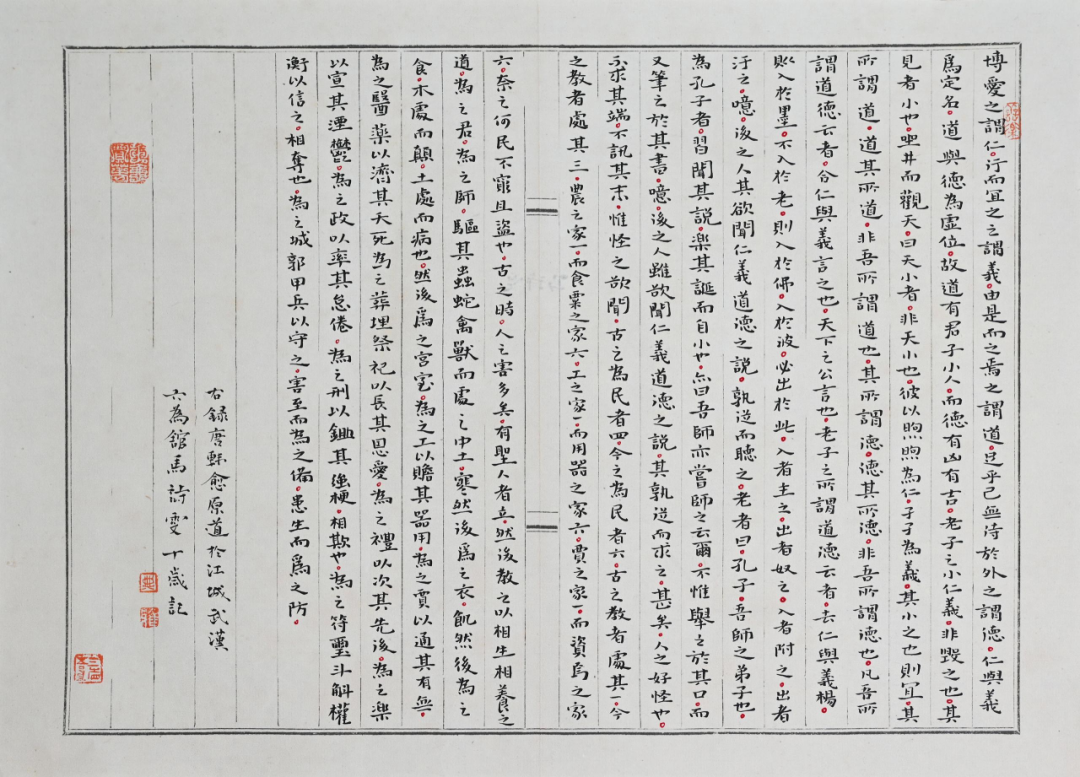 博愛之謂仁。行而宜之之謂義。由是而之焉之謂道。足乎己無待於外之謂德。仁與義
爲定名。道與德為虛位。故道有君子小人。而德有凶有吉。老子之小仁義。非毀之也。其
見者小也。坐井而觀天。曰天小者。非天小也。彼以煦煦為仁。孑孑為義。其小之也則宜。其
所謂道。道其所道。非吾所謂道也。其所謂德。德其所德。非吾所謂德也。凡吾所
謂道德云者。合仁與義言之也。天下之公言也。老子之所謂道德云者。去仁與義楊。
則入於墨。不入於老。則入於佛。入於彼。必出於此。入者主之。出者奴之。入者附之。出者
汙之。噫。後之人其欲聞仁義道德之説。孰從而聽之。老者曰。孔子。吾師之弟子也。
為孔子者。習聞其説。樂其誕而自小也。亦曰吾師亦嘗師之云爾。不惟舉之於其口。而
又筆之於其書。噫。後之人雖欲聞仁義道德之説。其孰從而求之。甚矣。人之好怪也。
不求其端。不訊其末。惟怪之欲聞。古之為民者四。今之為民者六。古之教者處其一。今
之教者處其三。農之家一。而食粟之家六。工之家一。而用器之家六。賈之家一。而資焉之家
六。奈之何民不窮且盜也。古之時。人之害多矣。有聖人者立。然後教之以相生相養之
道。為之君。為之師。驅其蟲蛇禽獸而處之中土。寒然後爲之衣。飢然後為之
食。木處而顛。土處而病也。然後爲之宮室。為之工以贍其器用。為之賈以通其有無。
為之醫藥以濟其夭死。為之葬埋祭祀以長其恩愛。為之禮以次其先後。為之樂
以宣其湮鬱。為之政以率其怠倦。為之刑以鋤其強梗。相欺也。為之符璽斗斛權
衡以信之。相奪也。為之城郭甲兵以守之。害至而為之備。患生而爲之防。
右録唐韓愈原道於江城武漢
六為館馬詩雯十歲記